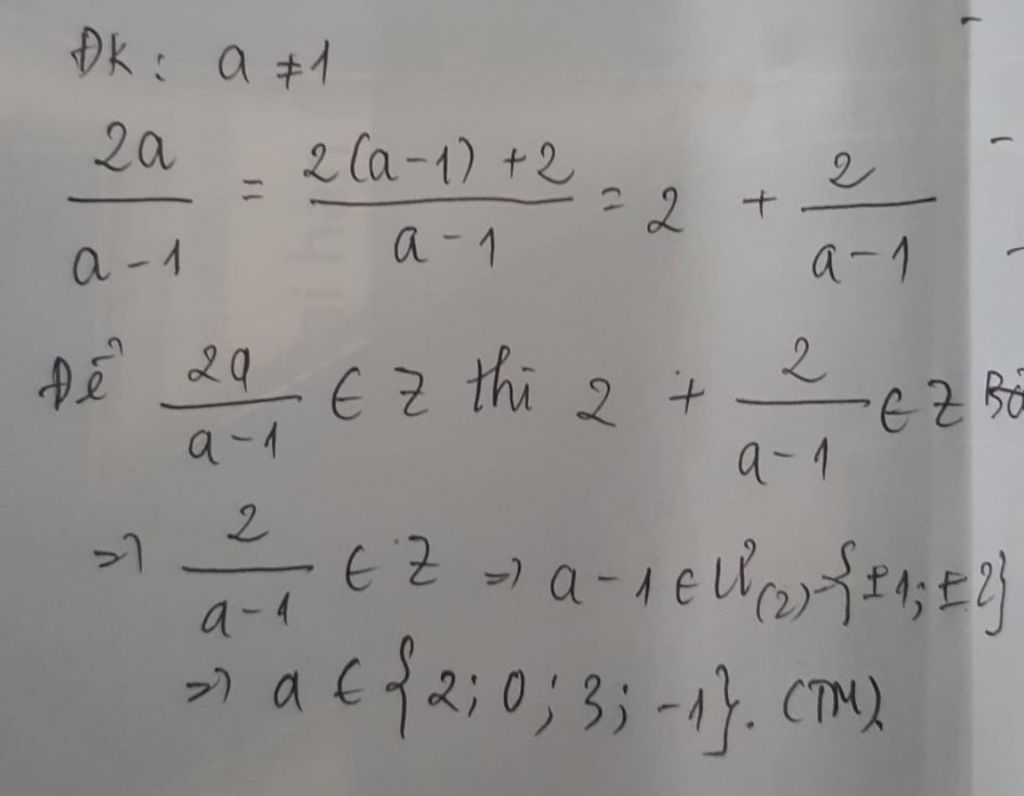 ĐK: a ≠ 1
2a/(a-1) = (2(a-1)+2)/(a-1) = 2 + 2/(a-1)
Để 2a/(a-1) ∈ Z thì 2 + 2/(a-1) ∈ Z
=> 2/(a-1) ∈ Z => a-1 ∈ Ư(2) {±1; ±2}
=> a ∈ {2; 0; 3; -1}. (TM)